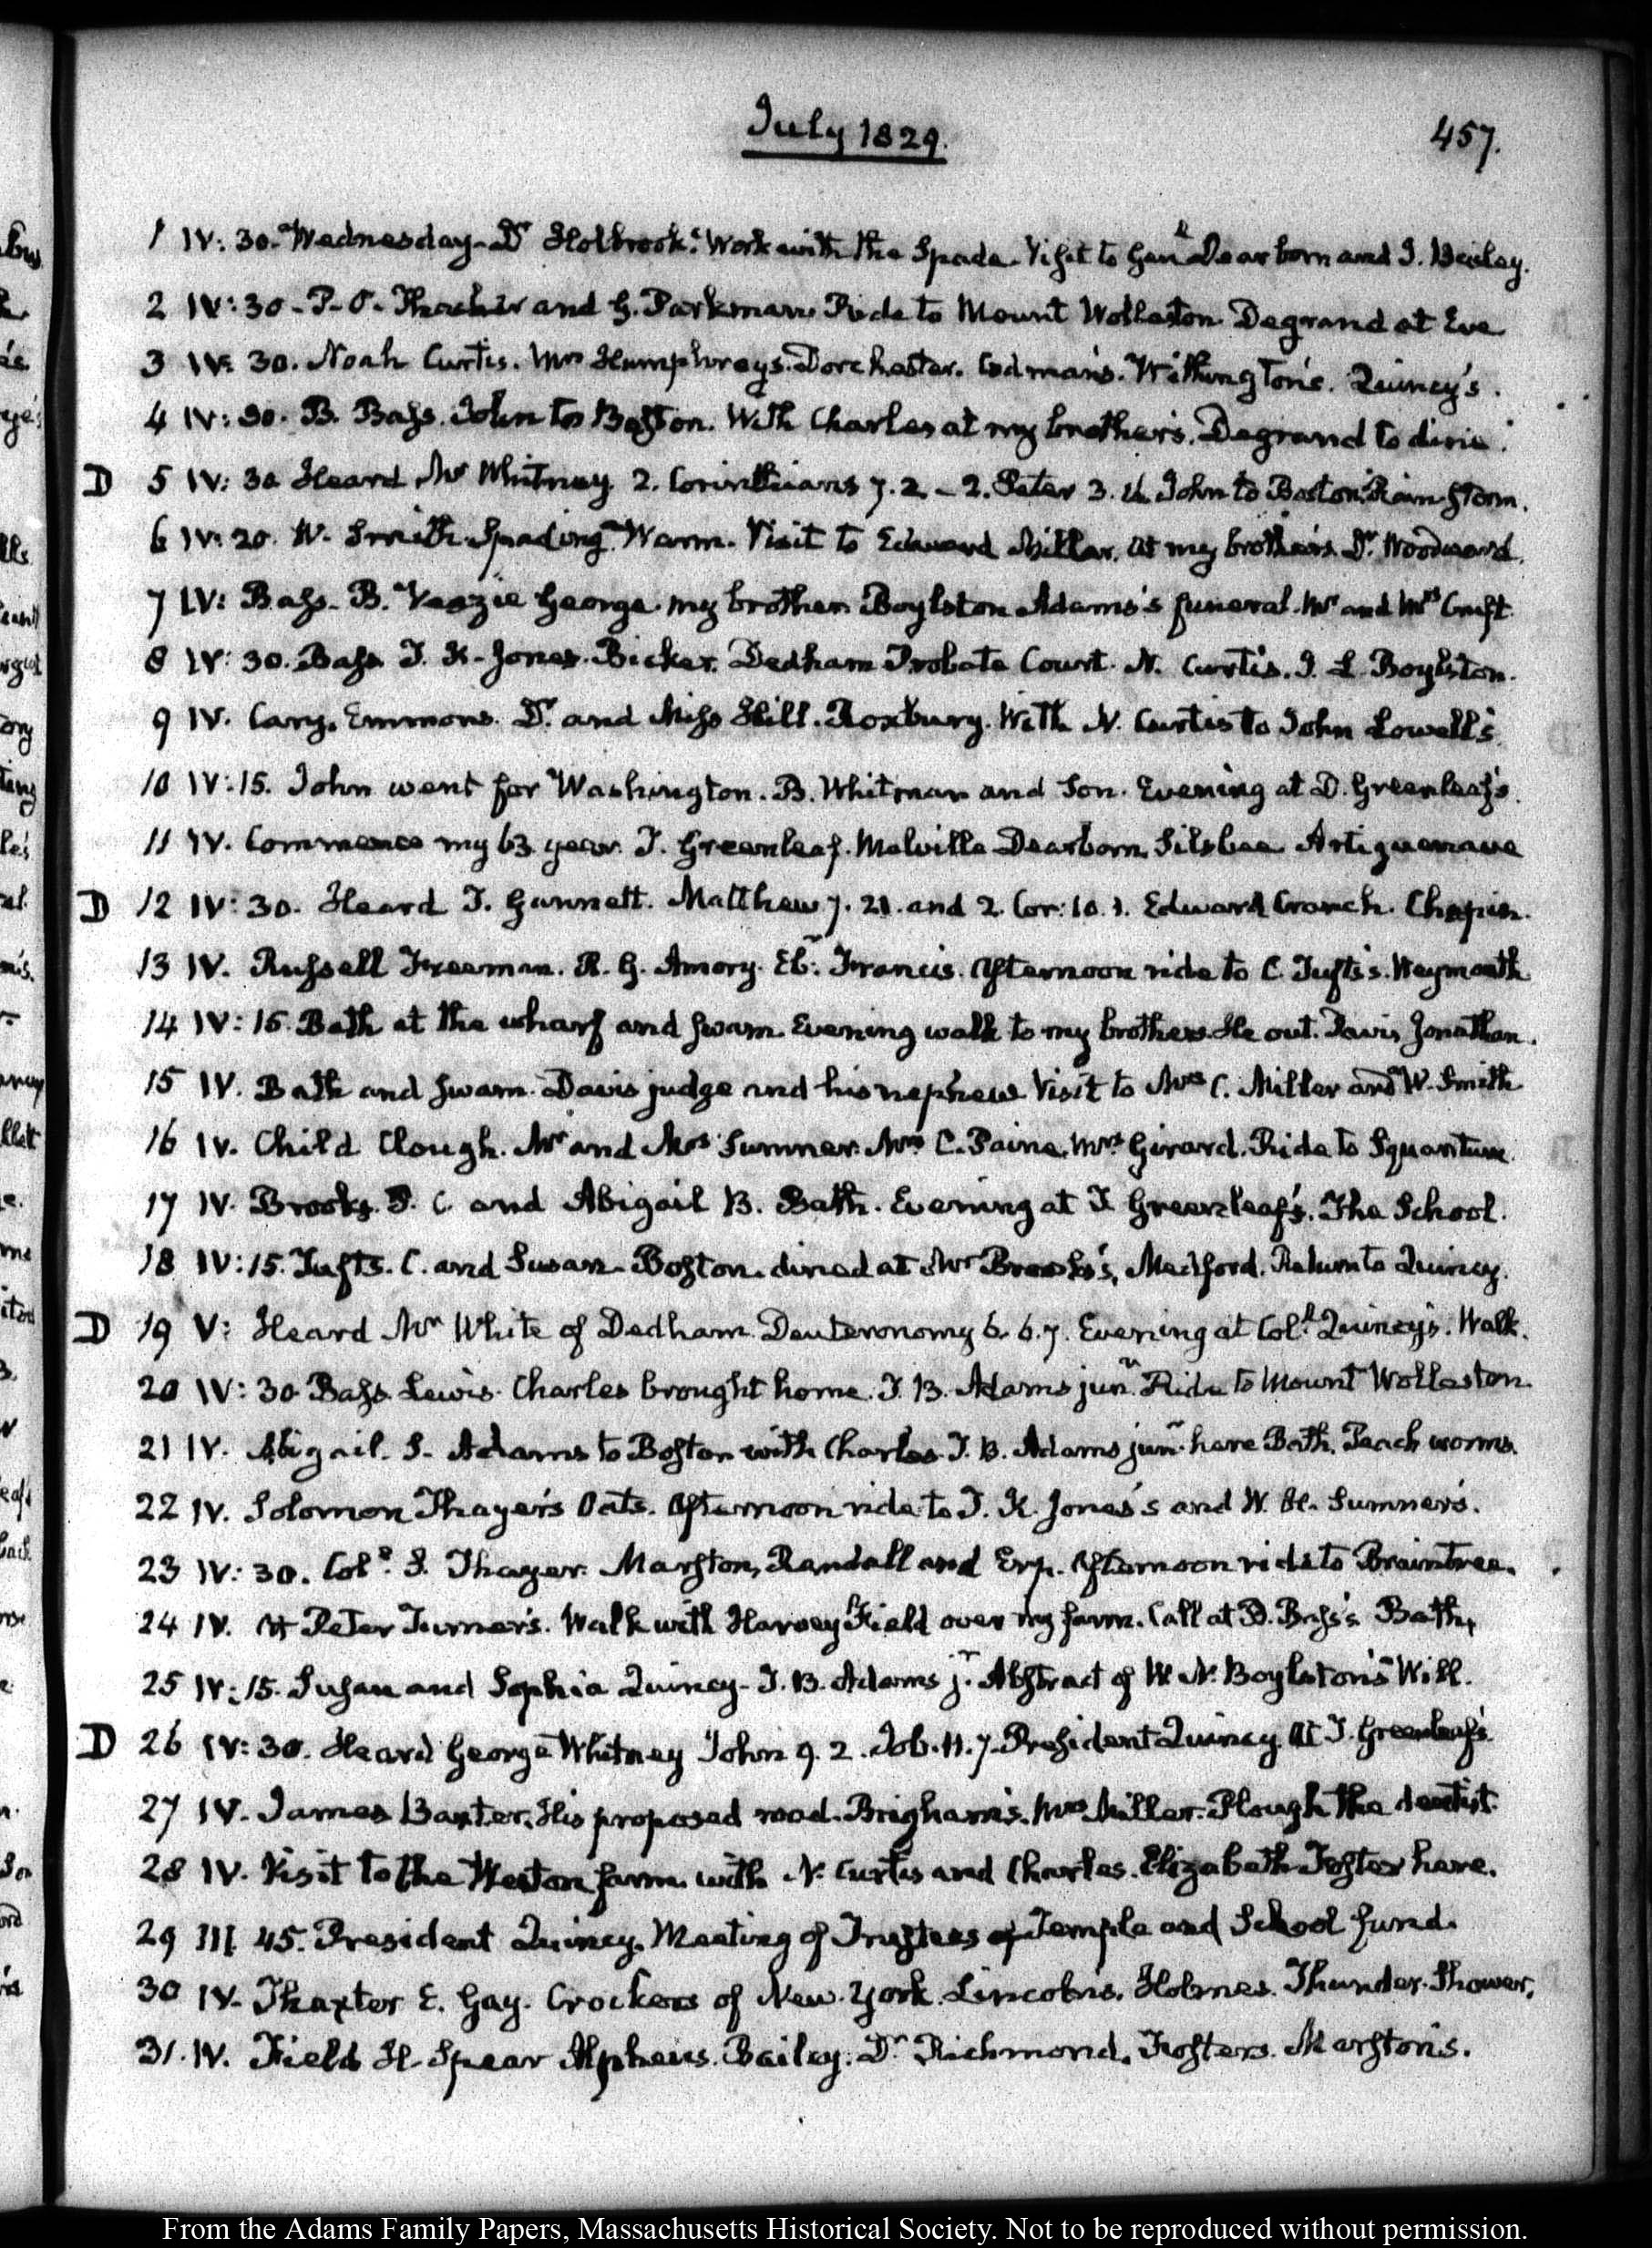 July 1829.
457.
1 IV: 30. Wednesday. Dr Holbrook. Work with the Spade. Visit to Genl Dearborn and J. Bailey.
2 IV: 30 - P. O. Thacher and G. Parkman. Ride to Mount Wollaston. Degrand at Eve
3 IV: 30. Noah Curtis. Mrs Humphreys. Dorchester. Codman's. Withington's. Quincy's.
4 IV: 30. B. Bass. John to Boston. With Charles at my brother's. Degrand to dine.
D 5 IV: 30 Heard Mr Whitney 2. Corinthians 7. 2. - 2. Peter 3. John to Boston. Rain Storm.
6 IV: 20. W. Smith. Spading. Warm. Visit to Edward Miller. at my brother's. Dr Woodward.
7 IV: Bass. B. Veazie George. my brother. Boylston Adams's funeral. Mr and Mrs Cruft.
8 IV: 30. Bass. T. K. Jones. Bicker. Dedham Probate Court. N. Curtis. J. L. Boylston.
9 IV. Cary. Emmons. Dr and Miss Hill. Roxbury. With N. Curtis to John Lowell's.
10 IV: 15. John went for Washington. B. Whitman and Son. Evening at D. Greenleaf's.
11 IV. Commence my 63 year. T. Greenleaf. Melville Dearborn. Silsbee Artiguenave
D 12 IV: 30. Heard T. Gannett. Matthew 7. 21. and 2. Cor: 10. 1. Edward Cranch. Chapin.
13 IV. Russell Freeman. R. G. Amory. Eb: Francis. Afternoon ride to C. Tufts's. Weymouth
14 IV: 15. Bath at the wharf and swam. Evening walk to my brothers. He out. Davis, Jonathan.
15 IV. Bath and swam. Davis judge and his nephew. Visit to Mrs C. Miller and W. Smith
16 IV. Child Clough. Mr and Mrs Sumner. Mrs C. Paine. Mrs Girard. Ride to Squantum.
17 IV. Brooks. P. C. and Abigail B. Bath. Evening at T. Greenleaf's. The School.
18 IV: 15. Tufts. C. and Susan. Boston. dined at Mr Brooks's, Medford. Return to Quincy.
D 19 V: Heard Mr White of Dedham. Deuteronomy 6. 6. 7. Evening at Coll Quincy's. Walk.
20 IV: 30 Bass. Lewis. Charles brought home. T. B. Adams junr Ride to Mount Wollaston.
21 IV. Abigail. S. Adams to Boston with Charles. T. B. Adams junr here Bath. Peach worms.
22 IV. Solomon Thayer's Oats. Afternoon ride to T. K. Jones's and W. H. Sumner's.
23 IV: 30. Col: S. Thayer. Marston, Randall and Afternoon ride to Braintree.
24 IV. At Peter Turner's. Walk with Harvey Field over my farm. Call at D. Bass's. Bath,
25 IV: 15. Susan and Sophia Quincy. T. B. Adams jr. Abstract of W. N. Boylston's Will.
D 26 IV: 30. Heard George Whitney John 9. 2. Job. 11. 7. President Quincy. At T. Greenleaf's.
27 IV. James Baxter. His proposed road. Brigham's. Mrs Miller. Plough the dentist.
28 IV. Visit to the Weston farm. with N. Curtis and Charles. Elizabeth Foster here.
29 III 45. President Quincy. Meeting of Trustees of Temple and School fund.
30 IV. Thaxter E. Gay. Crockers of New. York. Lincoln's. Holmes. Thunder. Shower,
31. IV. Field H. Spear Alpheus. Bailey. Dr Richmond. Fosters. Marston's.
From the Adams Family Papers, Massachusetts Historical Society. Not to be reproduced without permission.